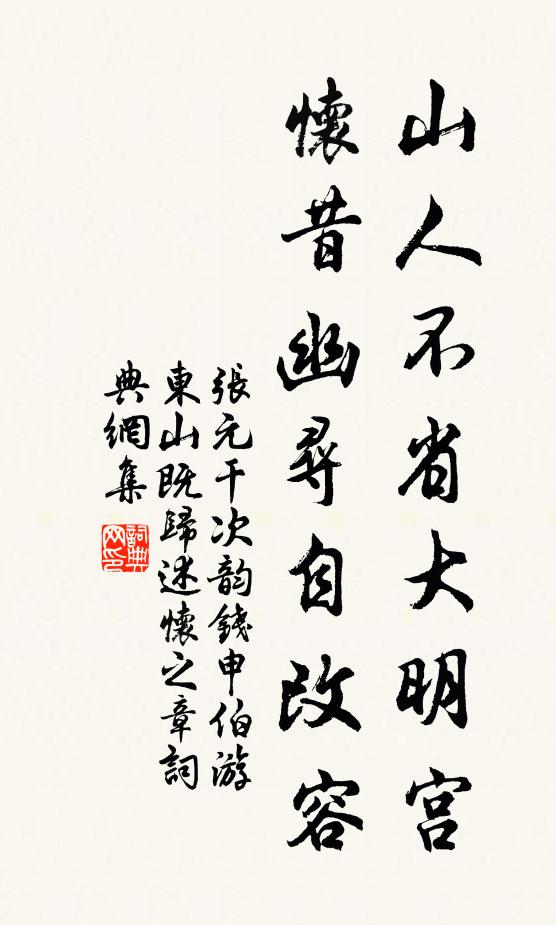 山人不省大明宫
懷昔幽尋自改容
張元干次韵錢申伯游
東山既歸述懷之章詞
典網集
詞典
网印